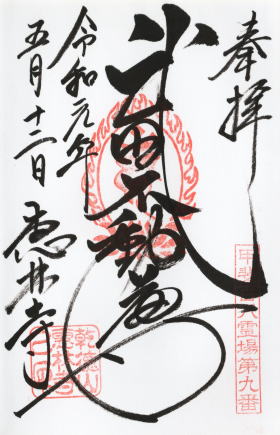 奉拝
甲斐百八霊場第九番
武田不動尊
令和元年
五月十二日
恵林寺
乾徳山